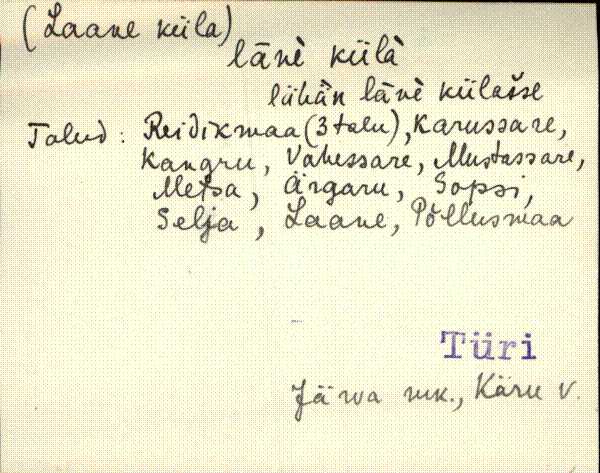 (Laane küla)
länè külà
lühän länè külašse
Talud: Reidikmaa (3 talu), Karussare,
Kangru, Vahessare, Mustassare,
Metsa, Ärgaru, Sopsi,
Selja, Laane, Põllusmaa
Türi
Järva mk., Käru v.